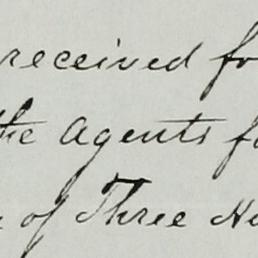 received fo
the Agents fo
of Three Hu